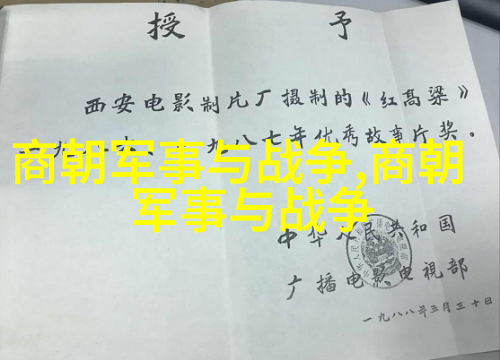 授 予
西安电影制片厂摄制的《红高粱》
一九八七年优秀故事片奖。
商朝军事与战争,商朝
军事与战争
中华人民共和国
广播电影电视部
一九八八年三月三十日